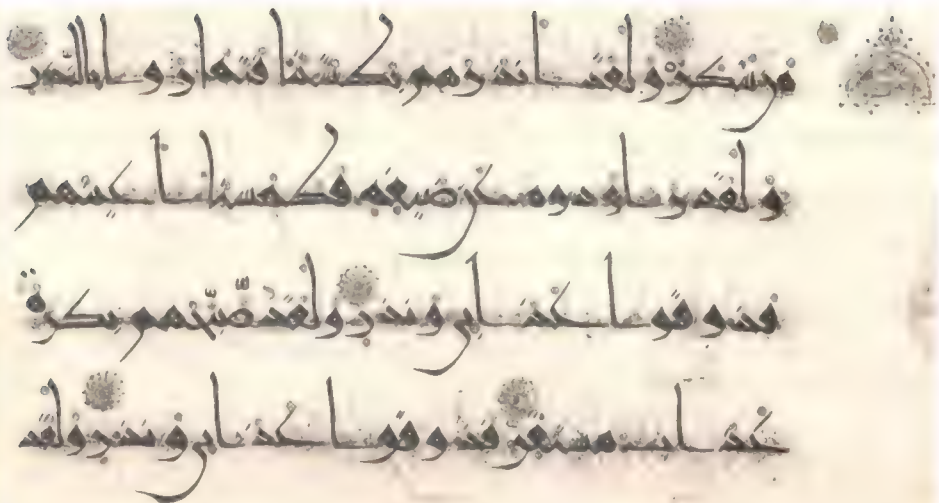 من شكر ولقد انذرهم بطشتنا فتماروا بالنذر
ولقد راودوه عن ضيفه فطمسنا اعينهم
فذوقوا عذابي ونذر ولقد صبّحهم بكرة
عذاب مستقر فذوقوا عذابي ونذر ولقد